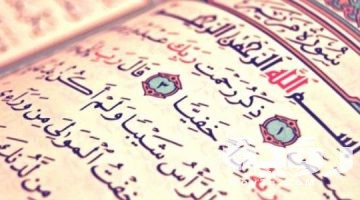 سُورَةُ مَرْيَمَ
سْمِ اللَّهِ الرَّحْمَٰنِ
١ ذِكْرُ رَحْمَتِ رَبِّكَ عَبْدَهُ
خَفِيًّا ٢ قَالَ رَبِّ
الرَّأْسُ شَيْبًا وَلَمْ أَكُنْ
خِفْتُ الْمَوَٰلِيَ مِن وَرَآءِى
مِن لَّدُنكَ